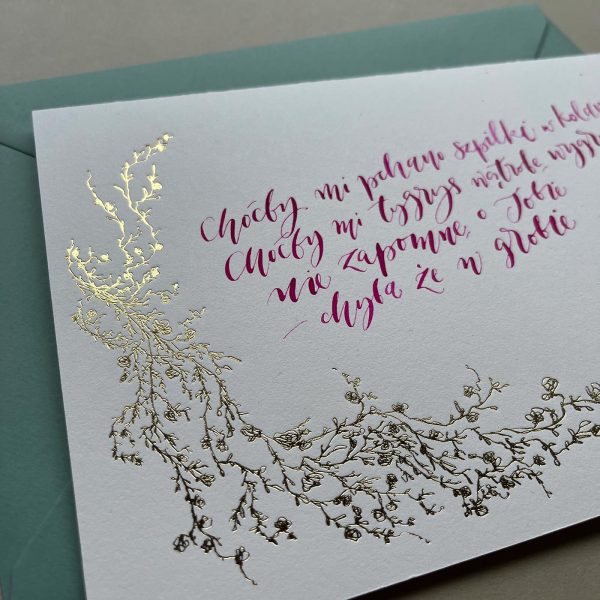 Choćby mi pchano szpilki w kolan
Choćby mi tygrys wątrobę wygry
nie zapomnę o Tobie
– chyba że w grobie